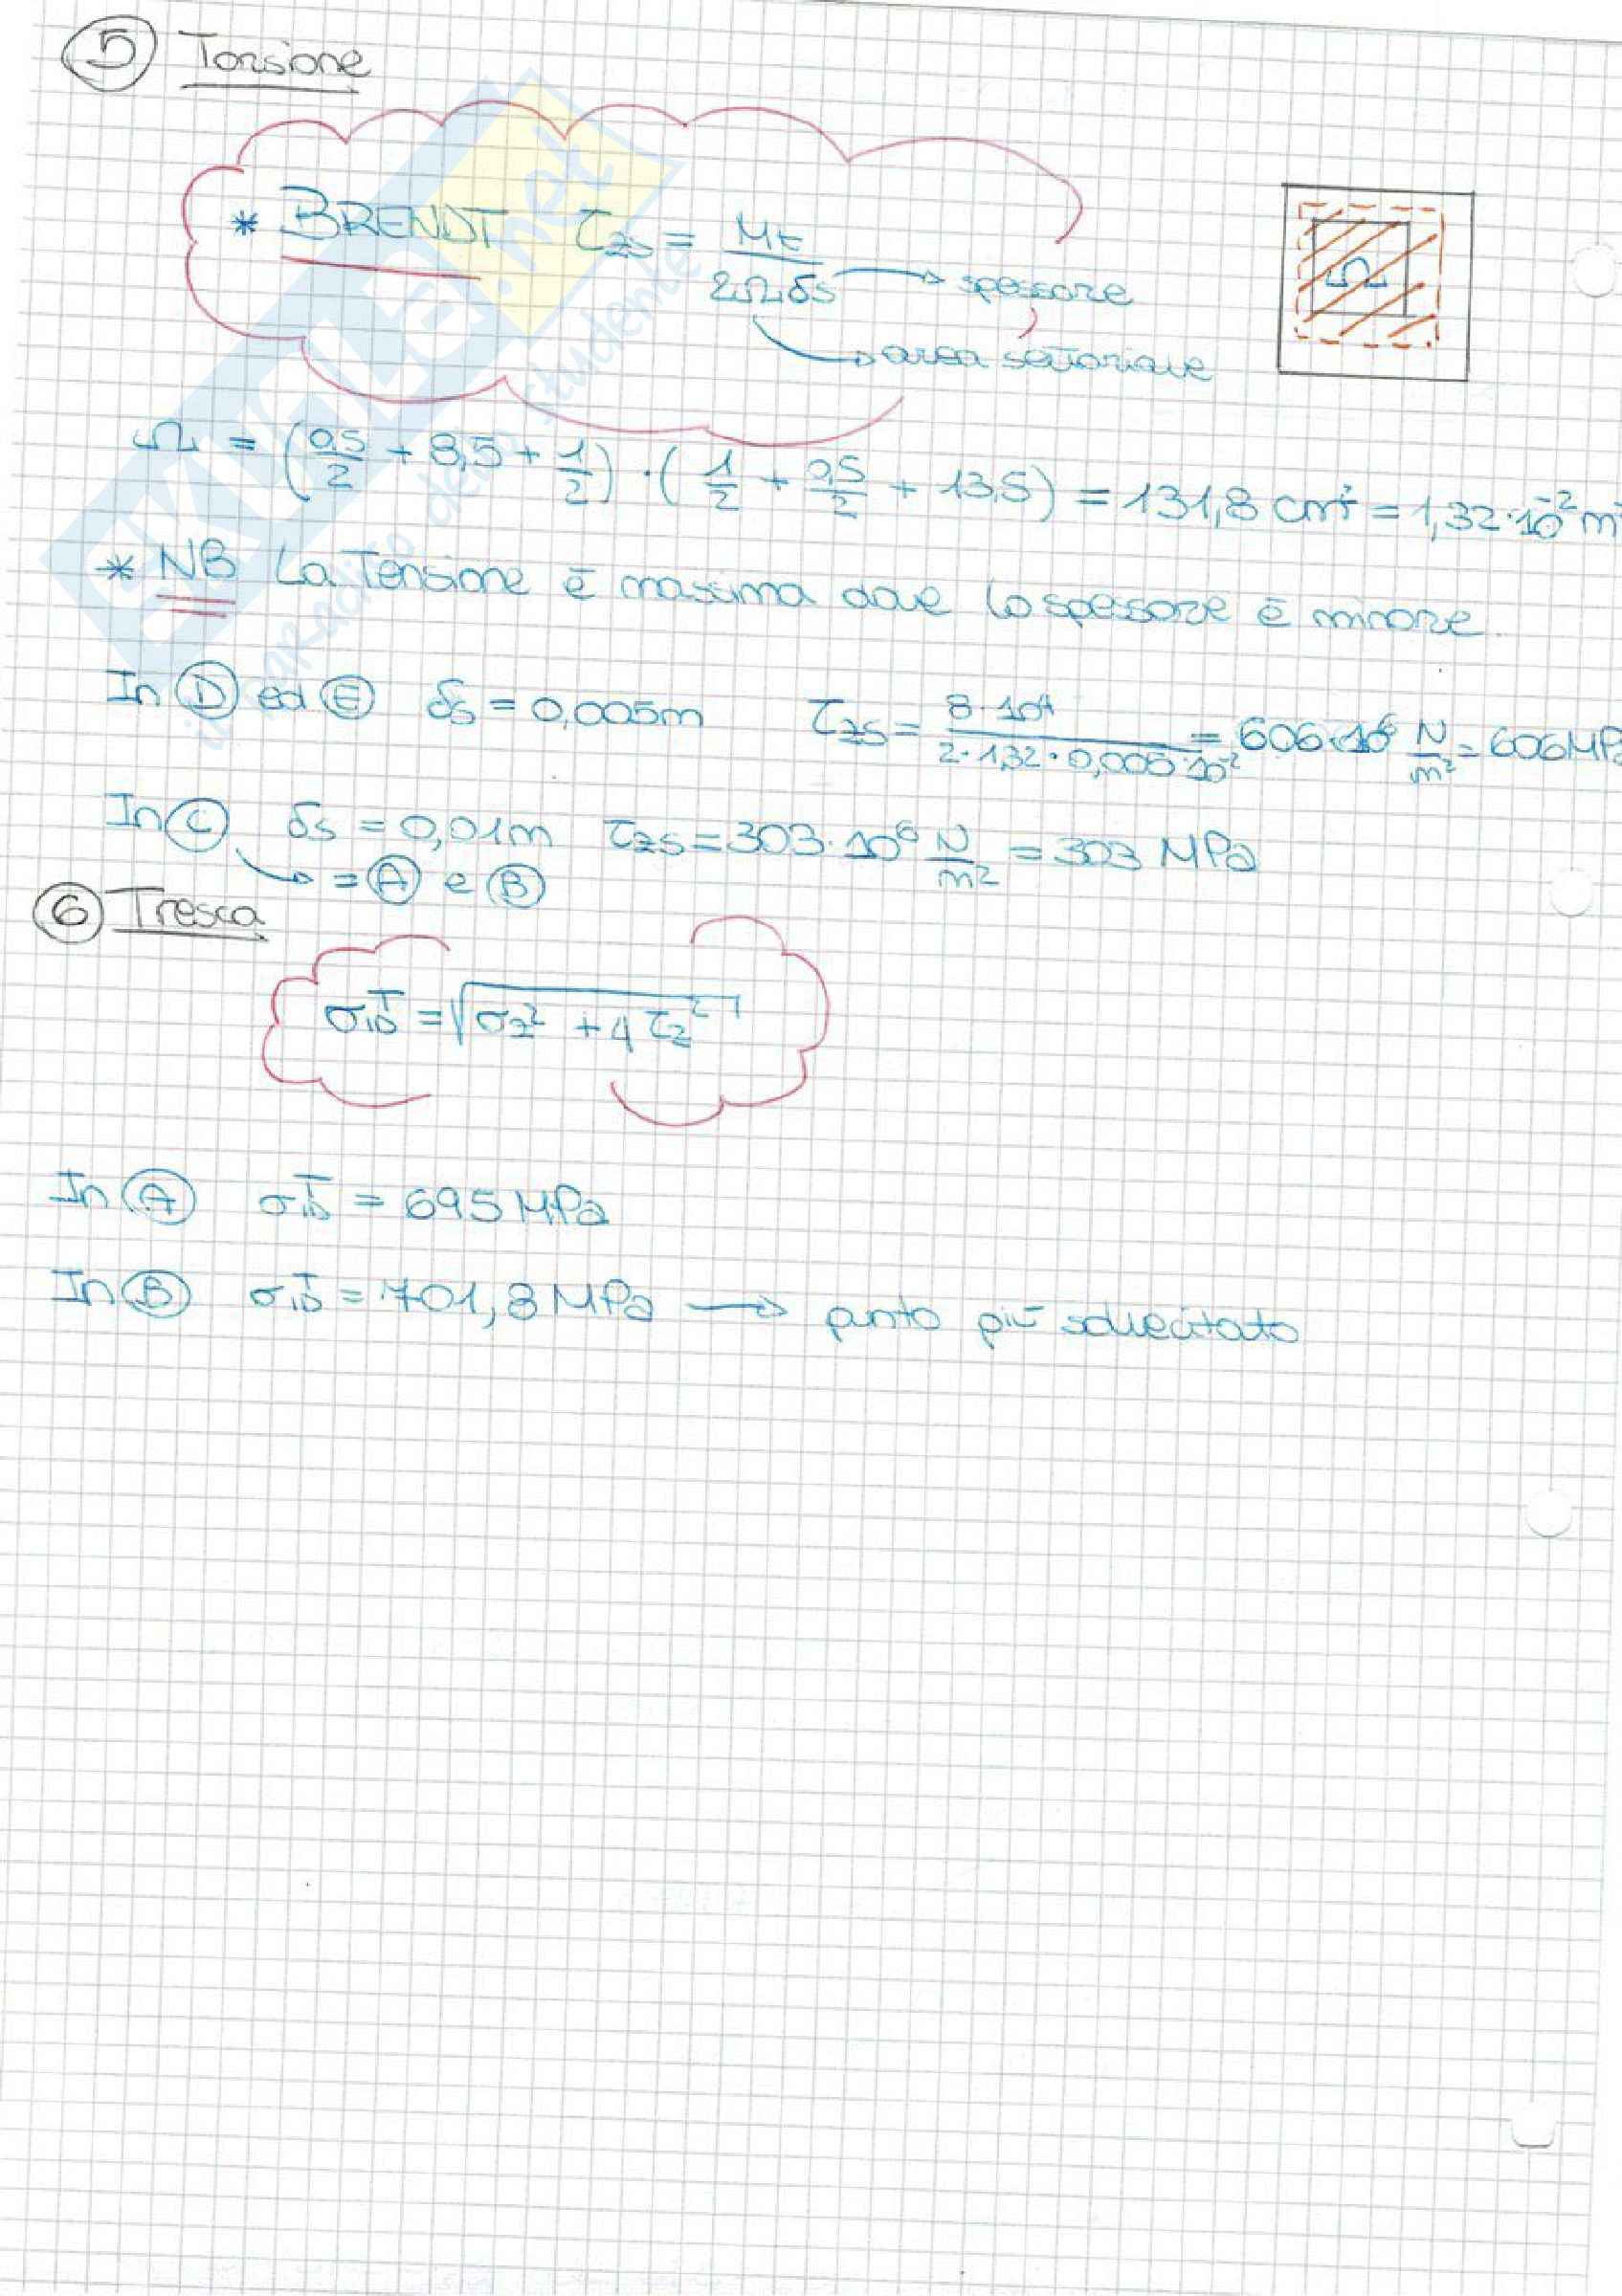 5 Torsione
* BRENDT τzs = Mt / 2Ωδs → spessore
→ area settoriale
Ω
Ω = (0,5/2 + 8,5 + 1/2) · (1/2 + 0,5/2 + 13,5) = 131,8 cm² = 1,32·10⁻² m²
* NB La Tensione è massima dove lo spessore è minore.
In D ed E δs = 0,005m τzs = 8·10⁴ / 2·1,32·0,005·10⁻² = 606·10⁶ N/m² = 606 MPa
In C δs = 0,01m τzs = 303·10⁶ N/m² = 303 MPa
→ = A e B
6 Tresca
σᵀid = √σz² + 4τz²
In A σᵀid = 695 MPa
In B σᵀid = 701,8 MPa → punto più sollecitato